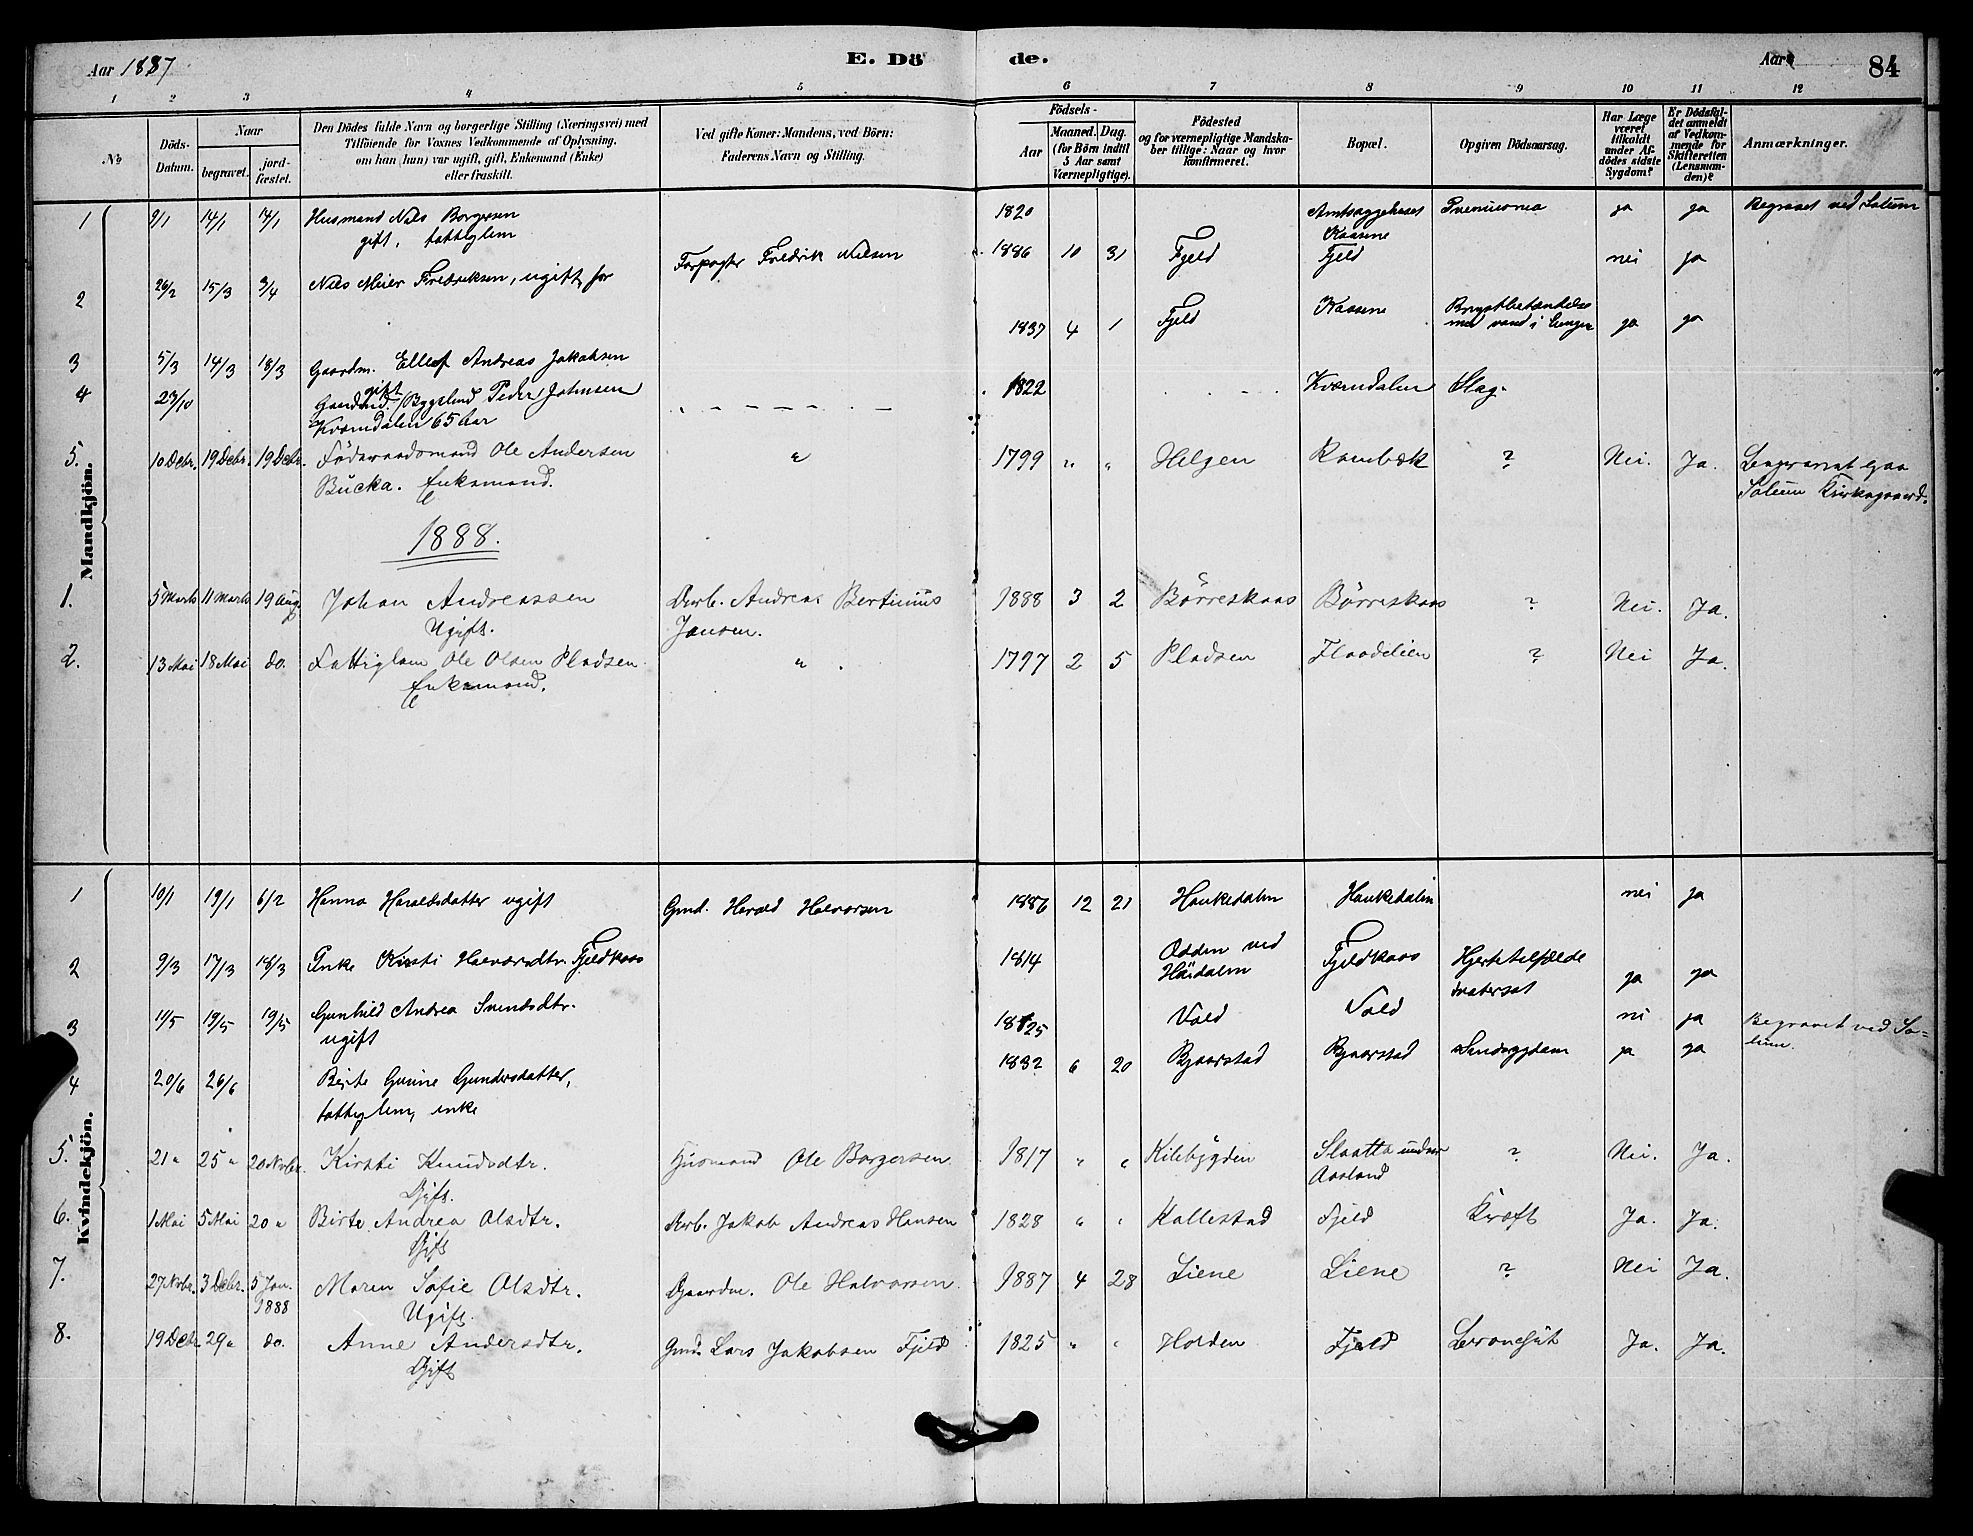 Aar 1887 E. Dö de. Aar 84
1 2 3 4 5 6 7 8 9 10 11 12
No
Döds-Datum.
Naar
begravet.
jord-fæstet.
Den Dödes fulde Navn og borgerlige Stilling (Næringsvei) med
Tilföiende for Voxnes Vedkommende af Oplysning,
om han (hun) var ugift, gift, Enkemand (Enke)
eller fraskilt.
Ved gifte Koner: Mandens, ved Börn:
Faderens Navn og Stilling.
Födsels-
Aar
Maaned. Dag.
(for Börn indtil
5 Aar samt
Værnepligtige).
Födested
og for værnepligtige Mandska-
ber tillige: Naar og hvor
konfirmeret.
Bopæl.
Opgiven Dödsaarsag.
Har Læge
været
tilkaldt
under Af-
dödes sidste
Sygdom?
Er Dödsfal-
det anmeldt
af Vedkom-
mende for
Skifteretten
(Lensman-
den)?
Anmærkninger.
Mandkjön.
1 9/1 14/1 14/1 Husmand Nils Borgersen 1820 Kaasene ja ja Begravet ved Solum
gift, fattiglem
2 26/2 15/3 3/4 Nils Meier Fredriksen, ugift, Forpagter Fredrik Nilsen 1886 10 31 Fjeld Fjeld nei ja
3 5/3 14/3 18/3 Gaardm. Ellef Andreas Jakobsen 1837 4 1 Fjeld Kaasene Brystbetændelse
gift med vand i Lunger ja ja
4 29/10 Peder Johnsen 1822 Kværndalen Slag.
Kværndalen 65 Aar
5. 10 Debr. 19 Debr. 19 Debr. Föderaadsmand Ole Andersen " 1799 " " Helgen Rambæk ? Nei. Ja. Begravet paa
Bucka. Enkemand. Solum Kirkegaard.
1888.
1. 5 Marts 11 Marts 19 Aug. Johan Andreassen Arb. Andreas Bertinius 1888 3 2 Börreskaas Börreskaas ? Nei. Ja.
Ugift. Jansen.
2. 13 Mai 18 Mai do. Fattiglem Ole Olsen Pladsen. " 1797 2 5 Pladsen Flaadelien ? Nei Ja.
Enkemand.
Kvindekjön.
1 10/1 19/1 6/2 Hanna Haraldsdatter ugift Gmd. Herald Halvorsen 1886 12 21 Haukedalen Haukedalen nei ja
2 9/3 17/3 18/3 Enke Kirsti Halvorsdtr. Fjeldkaas 1814 Odden ved Fjeldkaas Hjertetilfælde
Höidalen ja ja
3 11/5 19/5 19/5 Gunhild Andrea Svendsdtr. 1825 Vold Vold nei ja Begravet ved So-
ugift lum.
4 20/6 26/6 Birte Gunne Gundersdatter, 1832 6 20 Bjaarstad Bjaarstad Sindssygdom ja ja
fattiglem, enke
5. 21 " 25 " 20 Novbr. Kirsti Knudsdtr. Husmand Ole Borgersen 1817 " " Kilebygden Slaatta under ? Nei. Ja.
Gift. Aasland
6. 1 Mai 5 Mai 20 " Birte Andrea Olsdtr. Arb. Jakob Andreas Hansen 1828 " " Kallestad Fjeld Kræft Ja. Ja.
Gift
7. 27 Novbr. 3 Debr. 5 Jan. Maren Sofie Olsdtr. Gaardm. Ole Halvorsen. 1887 4 28 Liene Liene ? Nei Ja.
1888 Ugift.
8. 19 Debr. 29 " do. Anne Andersdtr. Gmd. Lars Jakobsen Fjeld 1825 " " Holden Fjeld Ja. Ja.
Gift